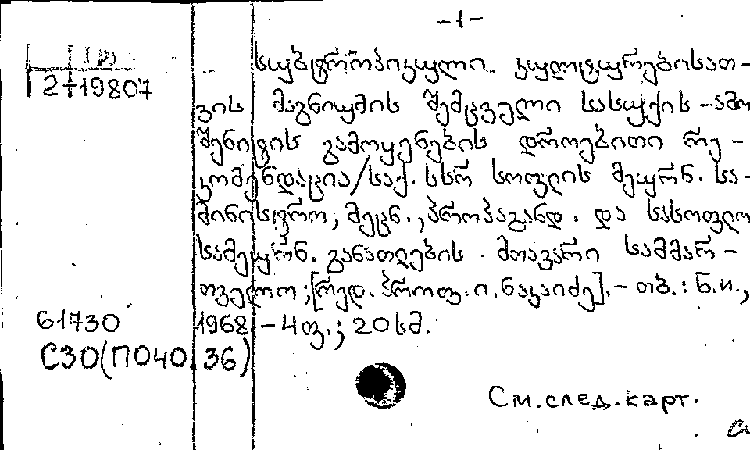 -1-
(p)
2+19807
სუბტროპიკული კულტურებისათ-
ვის მაგნიუმის შემცველი სასუქის - ამო
შენიტის გამოყენების დროებითი რე-
კომენდაცია/საქ. სსრ სოფლის მეურნ. სა-
მინისტრო, მეცნ., პროპაგანდ. და სასოფლო
სამეურნ. განათლების მთავარი სამმარ-
თველო; [რედ. პროფ. ი. ნაკაიძე]. - თბ.: ნ.ი.,
61730 1968 - 4ფ.; 20სმ.
С30(П040.36)
См. след. карт.